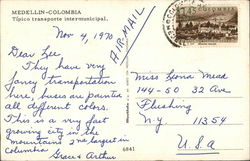 MEDELLIN-COLOMBIA
Típico transporte intermunicipal.
Nov 4, 1970
AIRMAIL
Dear Lee
They have very
fancy transportation
here, buses are painted
all different colors.
This is a very fast
growing city in the
mountains 2nd largest in
Colombia
Grace & Arthur
COLOMBIA
Miss Lona Mead
144-50 32 Ave
Flushing
N.Y. 11354
U.S.A
6841